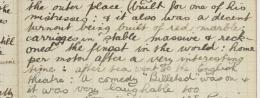 the outer place (built for one of his
mistresses; & it also was a decent
turnout being built of red marble;
carriages in stable massive & reck-
oned the finest in the world: home
per motor after a very interesting
time: after tea went to the English
theatre: a comedy "Billeted" was on &
it was very laughable too